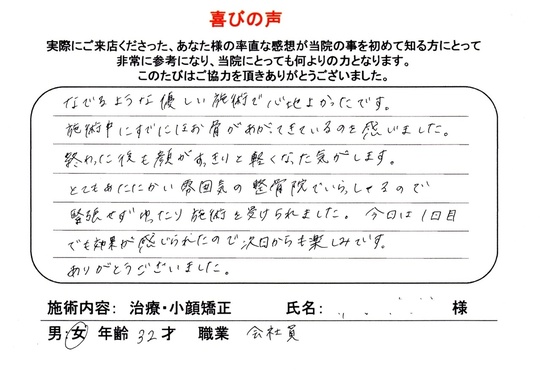 喜びの声
実際にご来店くださった、あなた様の率直な感想が当院の事を初めて知る方にとって
非常に参考になり、当院にとっても何よりの力となります。
このたびはご協力を頂きありがとうございました。
なでるような優しい施術で心地よかったです。
施術中にすでにほお骨があがてきているのを感じました。
終わった後も顔がすっきりと軽くなった気がします。
とてもあたたかい雰囲気の整骨院でいらっしゃるので
緊張せずゆったり施術を受けられました。今日は1日目
でも効果が感じられたので次回からも楽しみです。
ありがとうございました。
施術内容: 治療・小顔矯正 氏名: 様
男・女 年齢 32才 職業 会社員